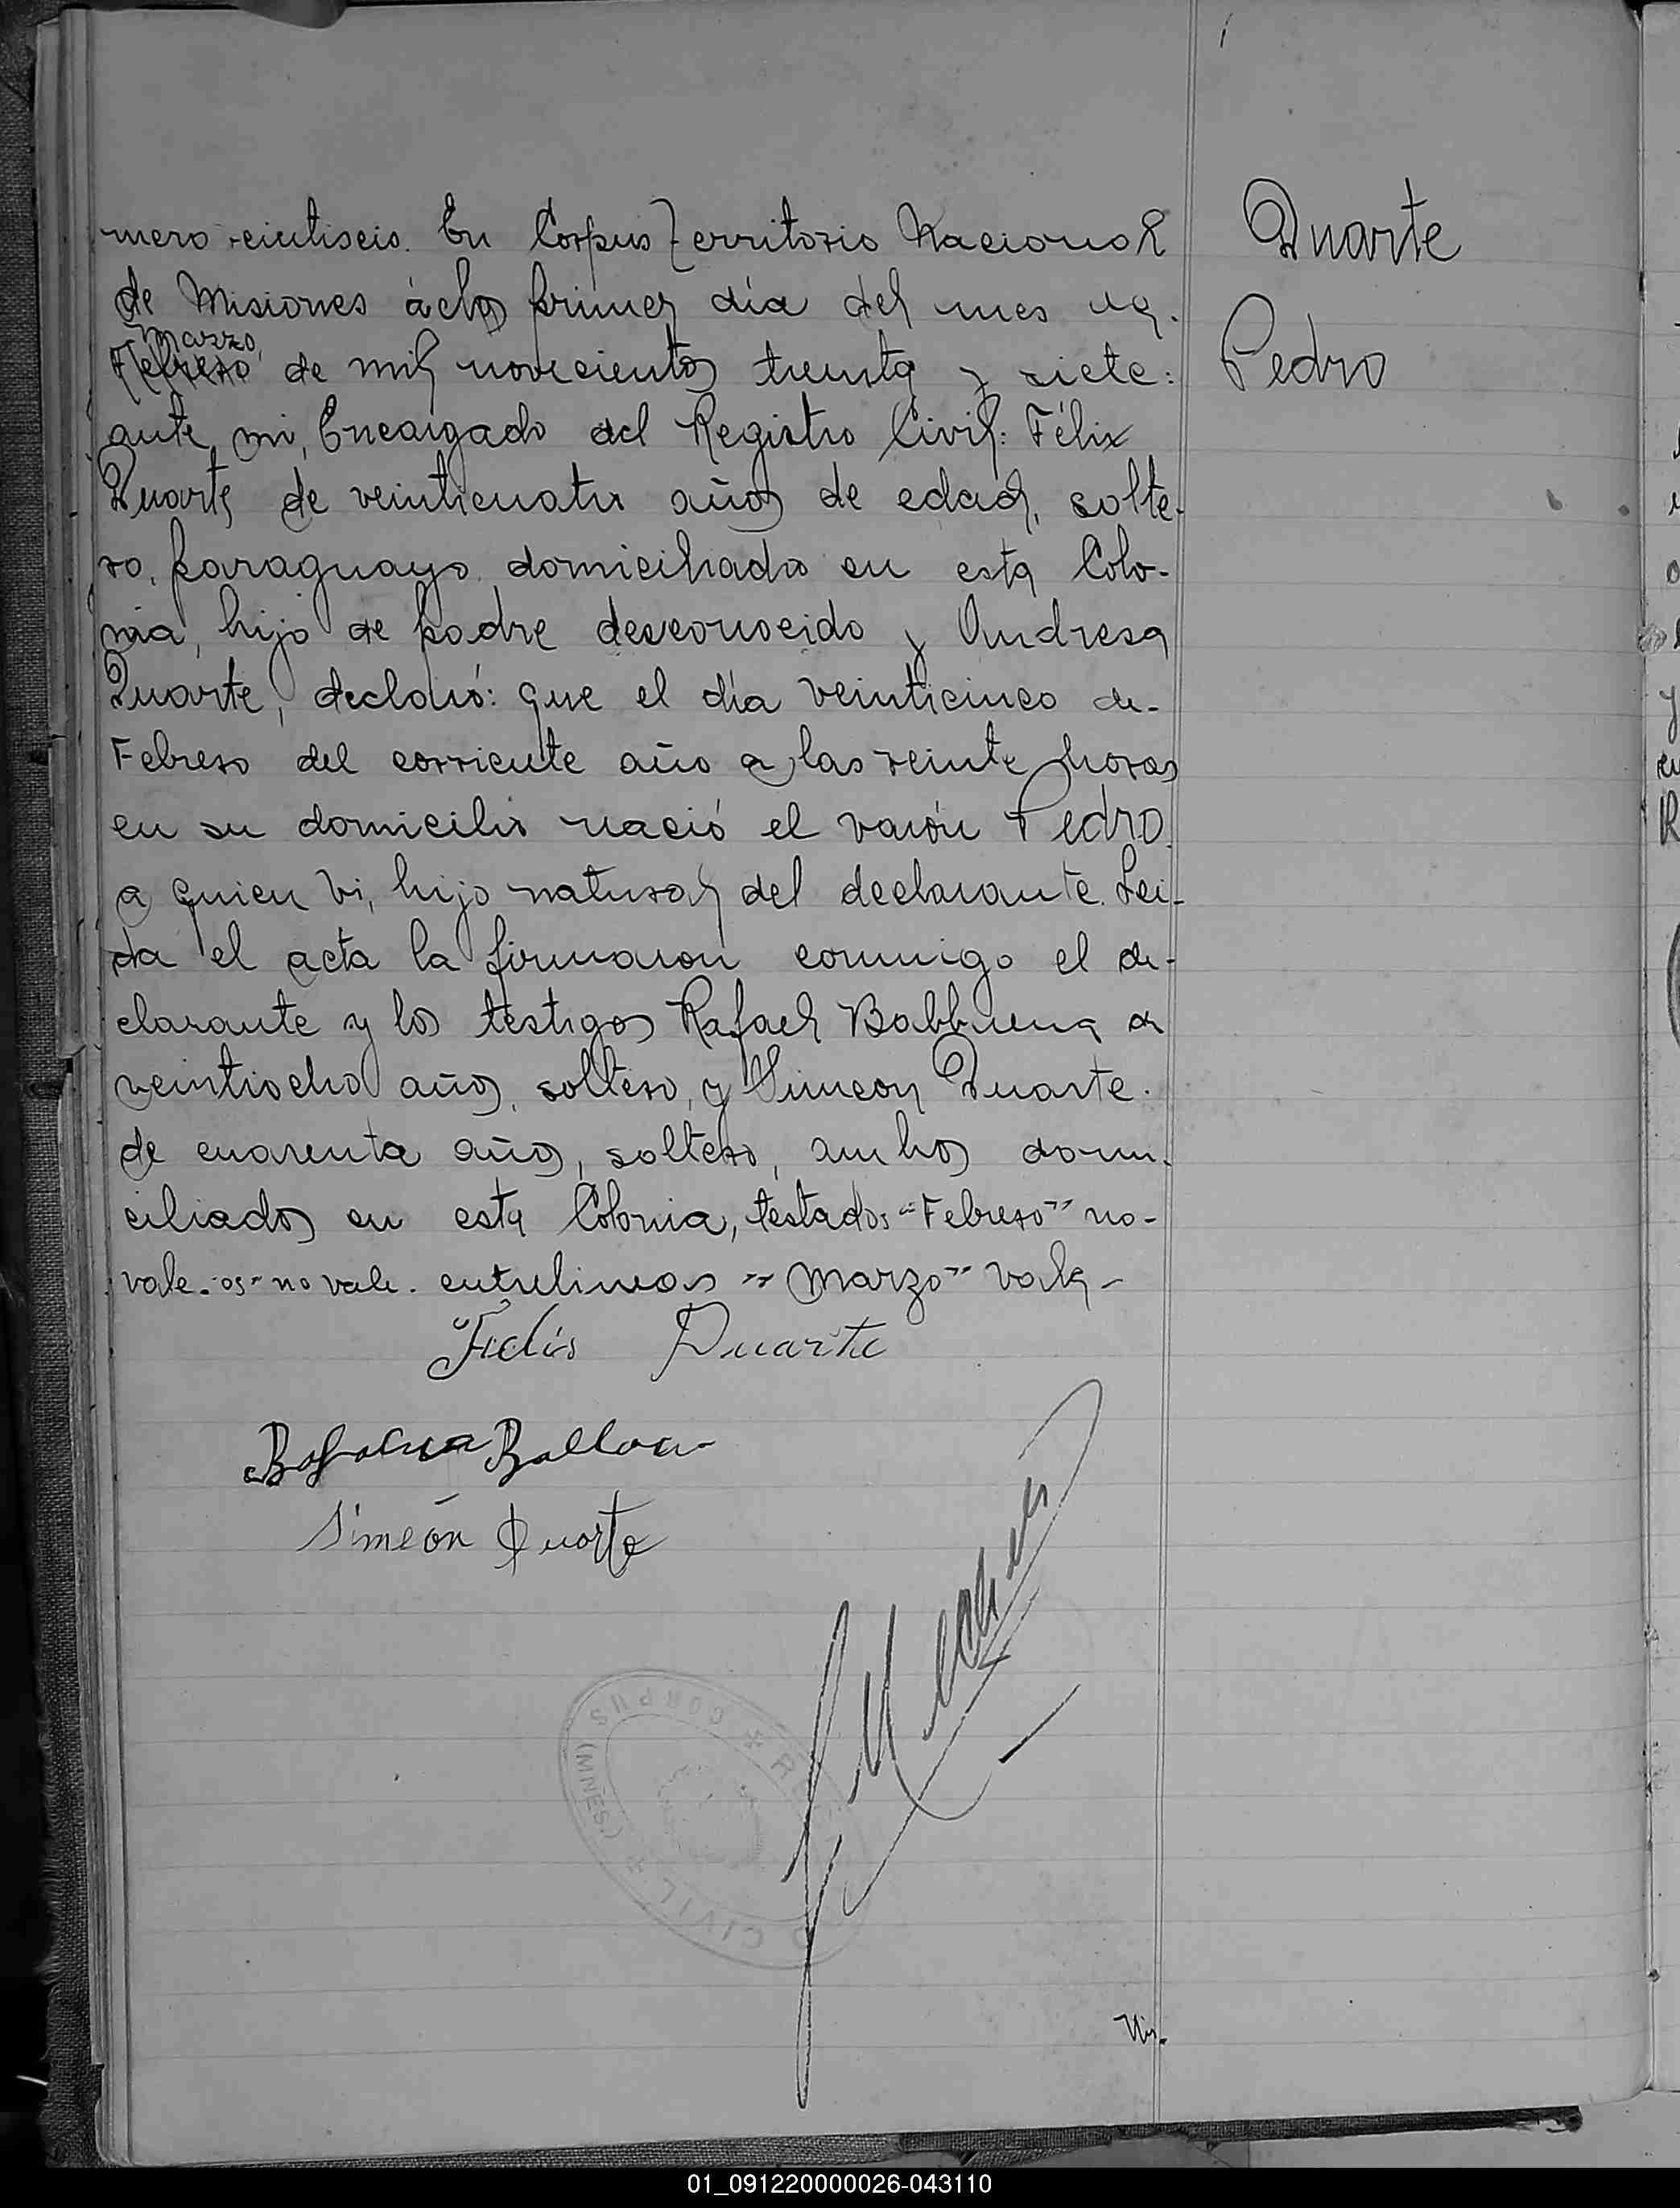 mero veintiseis. En Corpus Territorio Nacional
de Misiones á los primer día del mes de.
Marzo
Febrero de mil novecientos treinta y siete:
ante mi, Encargado del Registro Civil: Félix
Duarte de veinticuatro años de edad, solte-
ro, paraguayo domiciliado en esta Colo-
nia, hijo de padre desconocido y Andresa
Duarte, declaró: que el día veinticinco de-
Febrero del corriente año a las veinte horas
en su domicilio nació el varón Pedro
a quien vi, hijo natural del declarante. Lei-
da el acta la firmaron conmigo el de-
clarante y los testigos Rafael Balbuena de
veintiocho años, soltero, y Simeon Duarte.
de cuarenta años, soltero, ambos domi-
ciliados en esta Colonia, testados "Febrero" no-
vale. os" no vale. entrelineas "Marzo" vale-
Duarte
Pedro
Felis Duarte
Simeón Duarte
REGISTRO CIVIL * CORPUS (MNES.) *
01_091220000026-043110